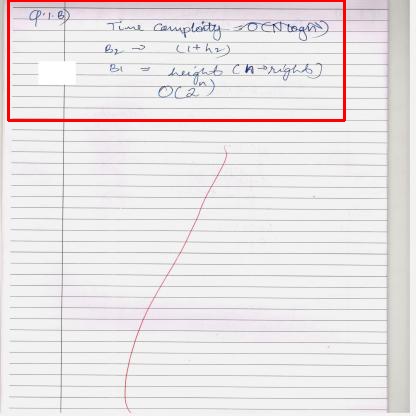 Q.1.B)
Time comploity = O(N logN)
B2 → (1+h2)
B1 = height (n→right)
O(2^n)